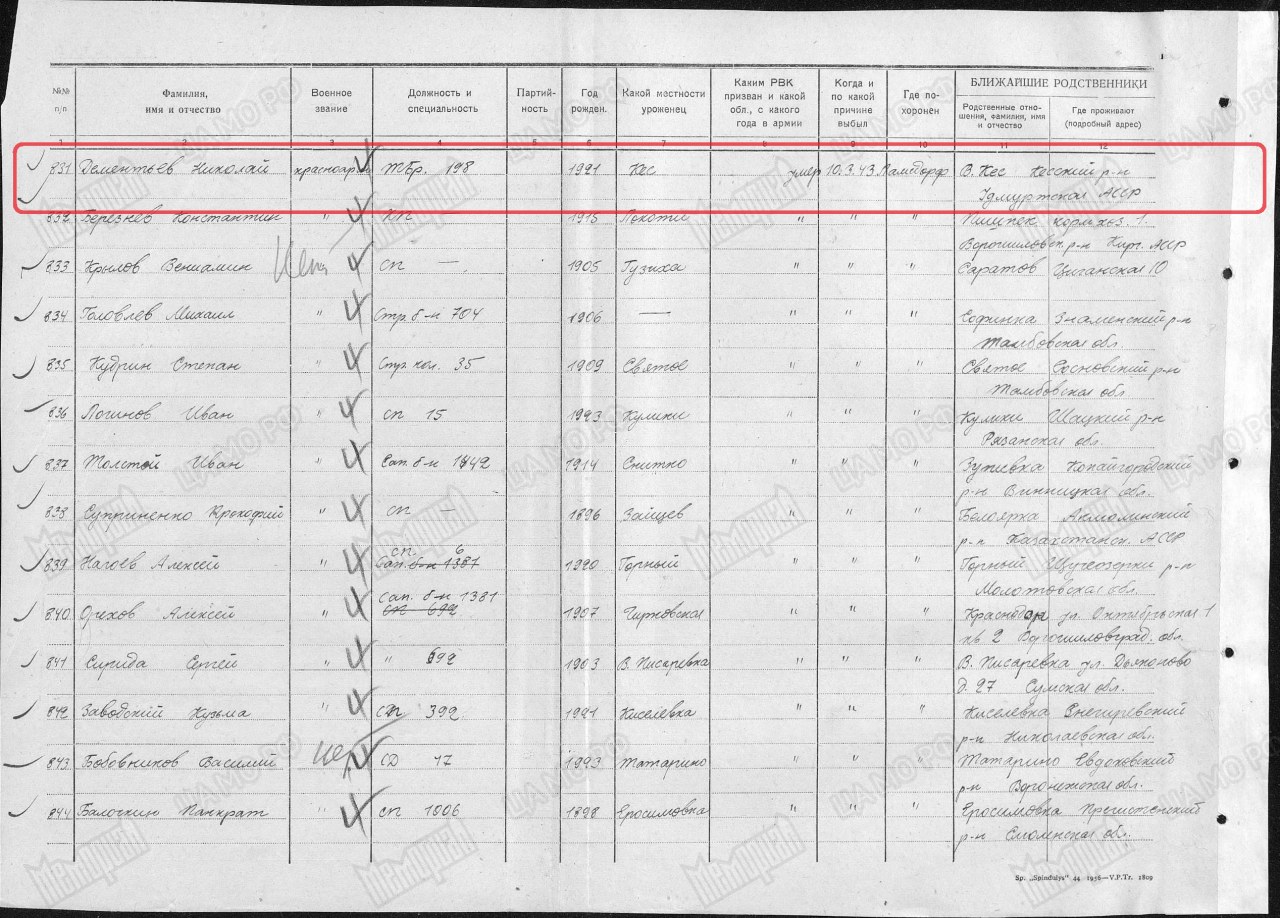 №№ п/п
Фамилия, имя и отчество
Военное звание
Должность и специальность
Партий-ность
Год рожден.
Какой местности уроженец
Каким РВК призван и какой обл., с какого года в армии
Когда и по какой причине выбыл
Где по-хоронен
БЛИЖАЙШИЕ РОДСТВЕННИКИ
Родственные отно-шения, фамилия, имя и отчество
Где проживают (подробный адрес)
1 2 3 4 5 6 7 8 9 10 11 12
831 Дементьев Николай красноарм. 198 1921 Кес умер 10.3.43. Ламсдорф В. Кес Кесский р-н
Удмуртская АССР
832 Березнев Константин 1915 " " " Пишпек колхоз. 1.
Ворошиловск. р-н Кирг. АССР
833 Крылов Вениамин СП — 1905 Гузиха " " " Саратов Циганская 10
834 Головлев Михаил " Стр. б-н 704 1906 — " " " Софинка Знаменский р-н
Тамбовская обл.
835 Кудрин Степан " 35 1909 Святое " " " Святое Сосновский р-н
Тамбовская обл.
836 Логинов Иван " СП 15 1923 Кулики " " " Кулики Шацкий р-н
Рязанская обл.
837 Толстой Иван " Сап. б-н 1914 Снитно " " " Копайгородский
р-н Винницкая обл.
838 Суприненко Прокофий " СП — 1896 Зайцев " " " Белоярка Акмолинский
р-н Казахстанск. АССР
839 Нагоев Алексей " СП. 6 Сап. б-н 1381 1920 Горный " " " Горный Щучеозерки р-н
Молотовская обл.
840 Орехов Алексей " Сап. б-н 1381 СП 692 1907 " " " Краснодон ул. Октябрьская 1
кв. 2 Ворошиловград. обл.
841 Сирида Сергей " " 692 1903 В. Писаревка " " " В. Писаревка ул. Дьяконово
д. 27 Сумская обл.
842 Заводский Кузьма " СП 392 1921 Киселевка " " " Киселевка Снегиревский
р-н Николаевская обл.
843 Бобовников Василий СД 17 1923 Татарино " " " Татарино Евдоковский
р-н Воронежская обл.
844 Балочкин Панкрат " СП 1006 1898 Еросимовка " " " Еросимовка
р-н Смоленская обл.
Sp. „Spindulys“ 44 1958—V.P.Tr. 1809
ЦАМО РФ
Мемориал